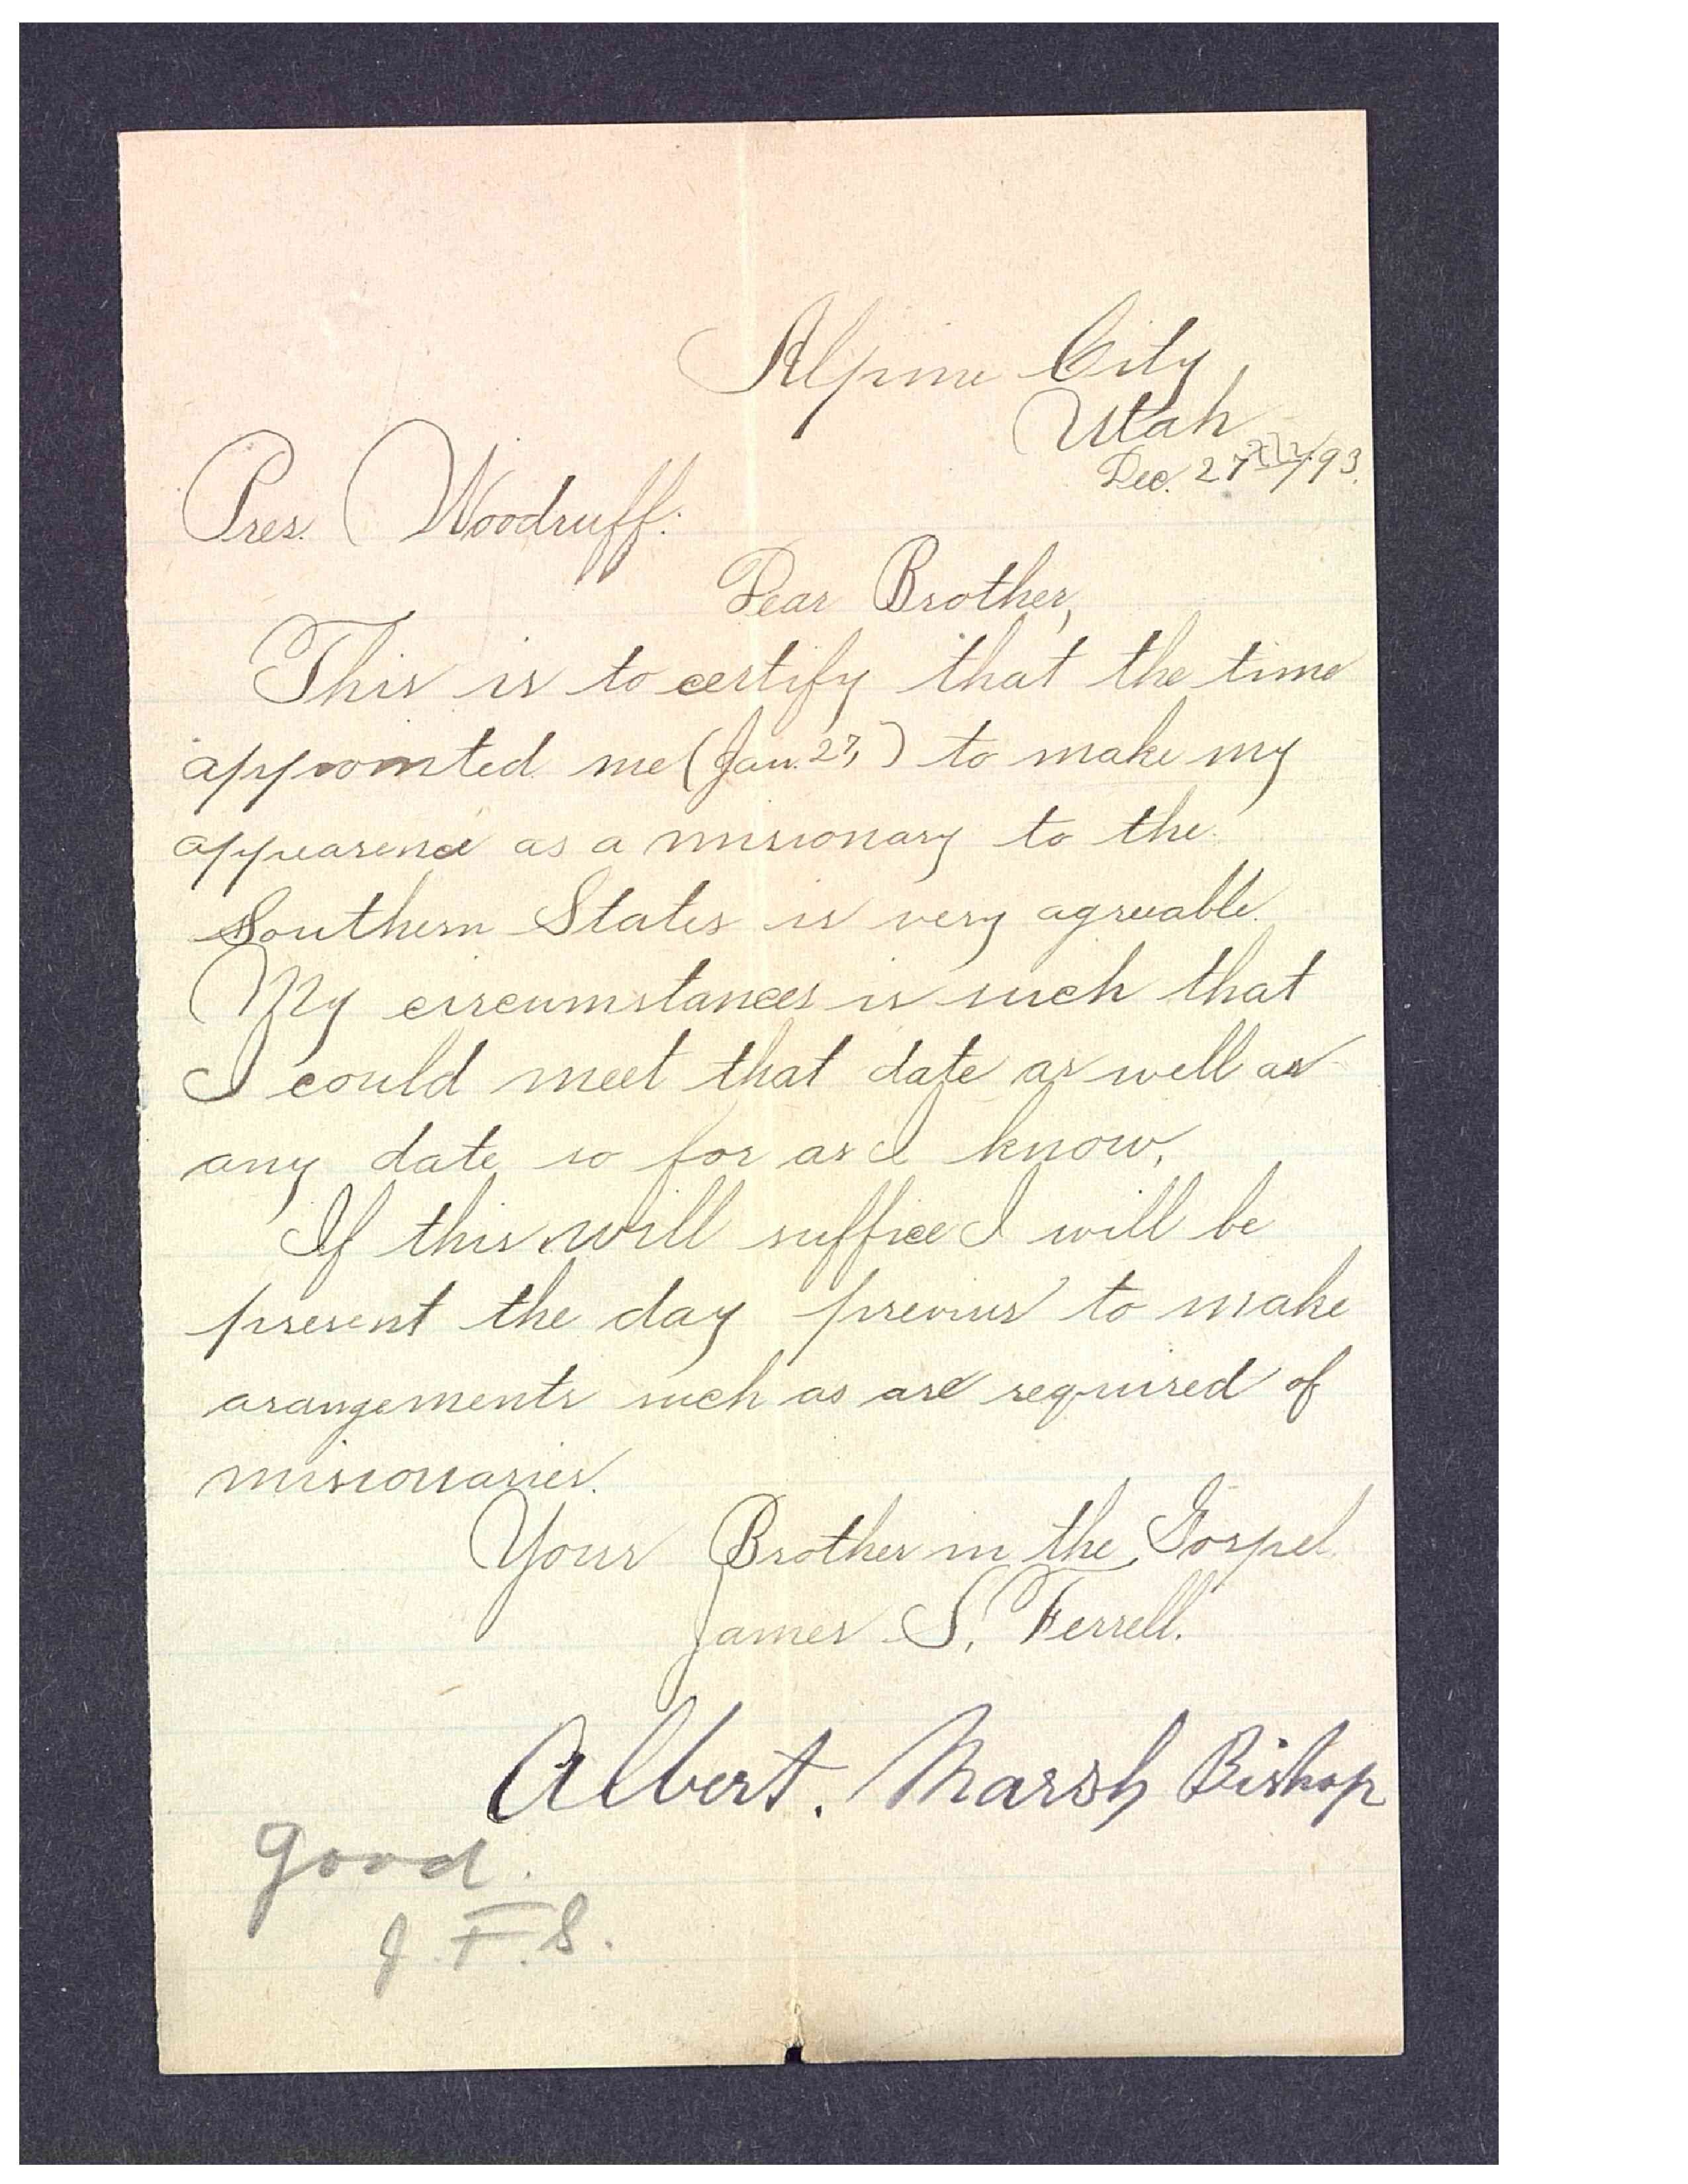 Alpine City
Utah
Dec. 27 XII/93.
Pres. Woodruff:
Dear Brother,
This is to certify that the time
appointed me (Jan. 27,) to make my
appearence as a misionary to the
Southern States is very agreeable.
My circumstances is such that
I could meet that date as well as
any date so for as I know.
If this will suffice I will be
present the day previus to make
arangements such as are required of
misionaries.
Your Brother in the Gospel
James S. Ferrell.
Albert. Marsh Bishop
good.
J. F. S.